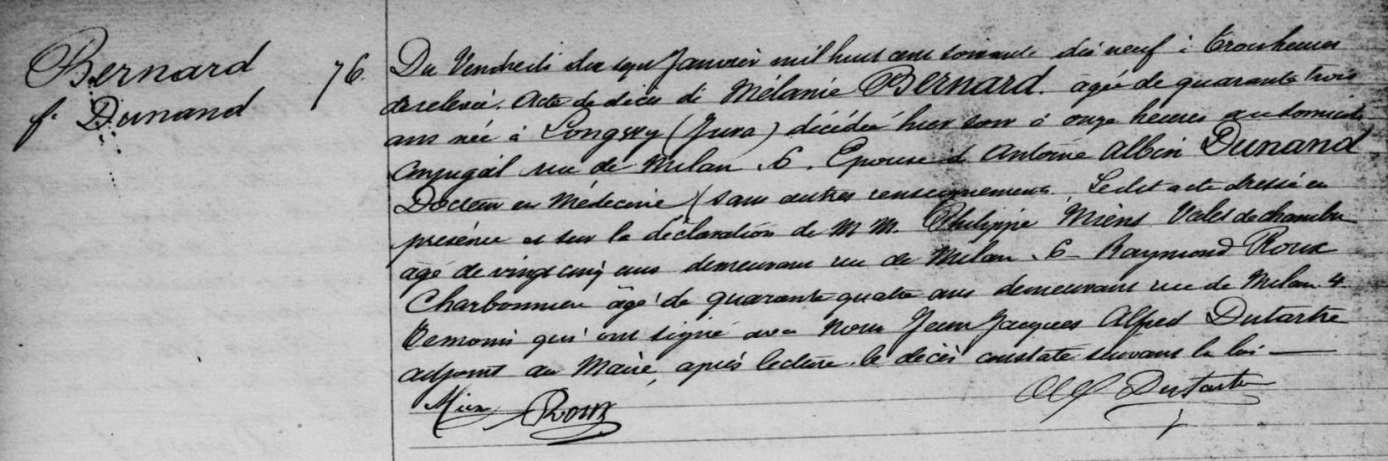 Bernard
f. Dunand
76.
Du Vendredi dix sept Janvier mil huit cent soixante dix neuf à trois heures
de relevée. Acte de décès de Mélanie Bernard. agée de quarante trois
ans née à Longwy (Jura) décédée hier soir à onze heures au domicile
conjugal rue de Milan 6. Epouse d Antoine Albin Dunand
Docteur en Médecine / sans autres renseignements. Ledit acte dressé en
présence et sur la déclaration de M M. Philippe Miens Valet de chambre
âgé de vingt cinq ans demeurant rue de Milan 6 - Raymond Roux
Charbonnier âgé de quarante quatre ans demeurant rue de Milan 4.
Temoins qui ont signé avec Nous Jean Jacques Alfred Dutartre
adjoint au Maire, après lecture, le décès constaté suivant la loi —
Roux
Dutartre